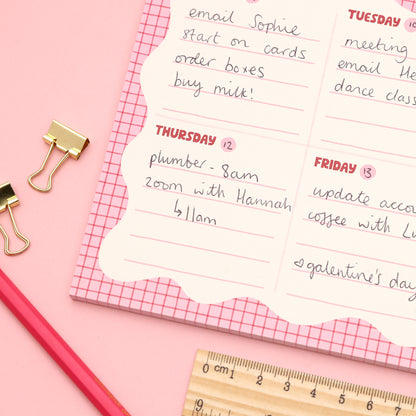 email Sophie
start on cards
order boxes
buy milk!
TUESDAY 10
meeting
email
dance class
THURSDAY 12
plumber - 8am
zoom with Hannah
↳11am
FRIDAY 13
update
coffee with
♡ galentine's day
0 cm 1 2 3 4 5 6 7 8
9